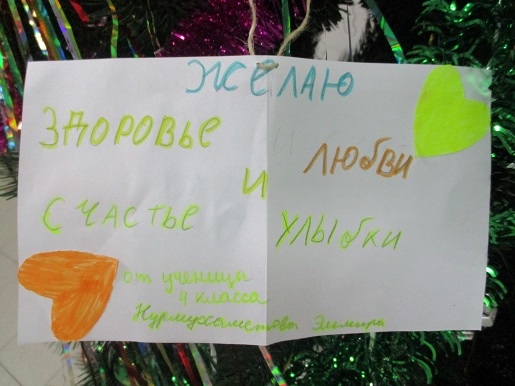 ЖЕЛАЮ
ЗДОРОВЬЕ
ЛЮБВИ
И
СЧАСТЬЕ
УЛЫБКИ
от ученицы
4 класса
Нурмухаметовы Эльмира